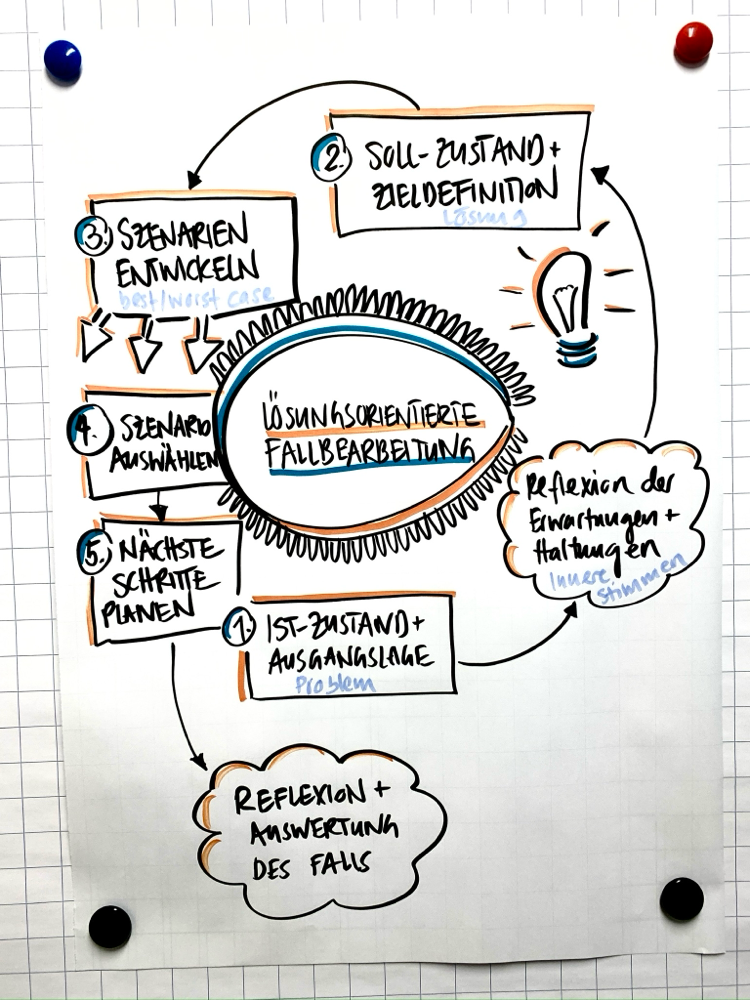 LÖSUNGSORIENTIERTE
FALLBEARBEITUNG
1. IST-ZUSTAND +
AUSGANGSLAGE
Problem
Reflexion der
Erwartungen +
Haltungen
Innere
Stimmen
2. SOLL-ZUSTAND +
ZIELDEFINITION
Lösung
3. SZENARIEN
ENTWICKELN
best/worst case
4. SZENARIO
AUSWÄHLEN
5. NÄCHSTE
SCHRITTE
PLANEN
REFLEXION +
AUSWERTUNG
DES FALLS